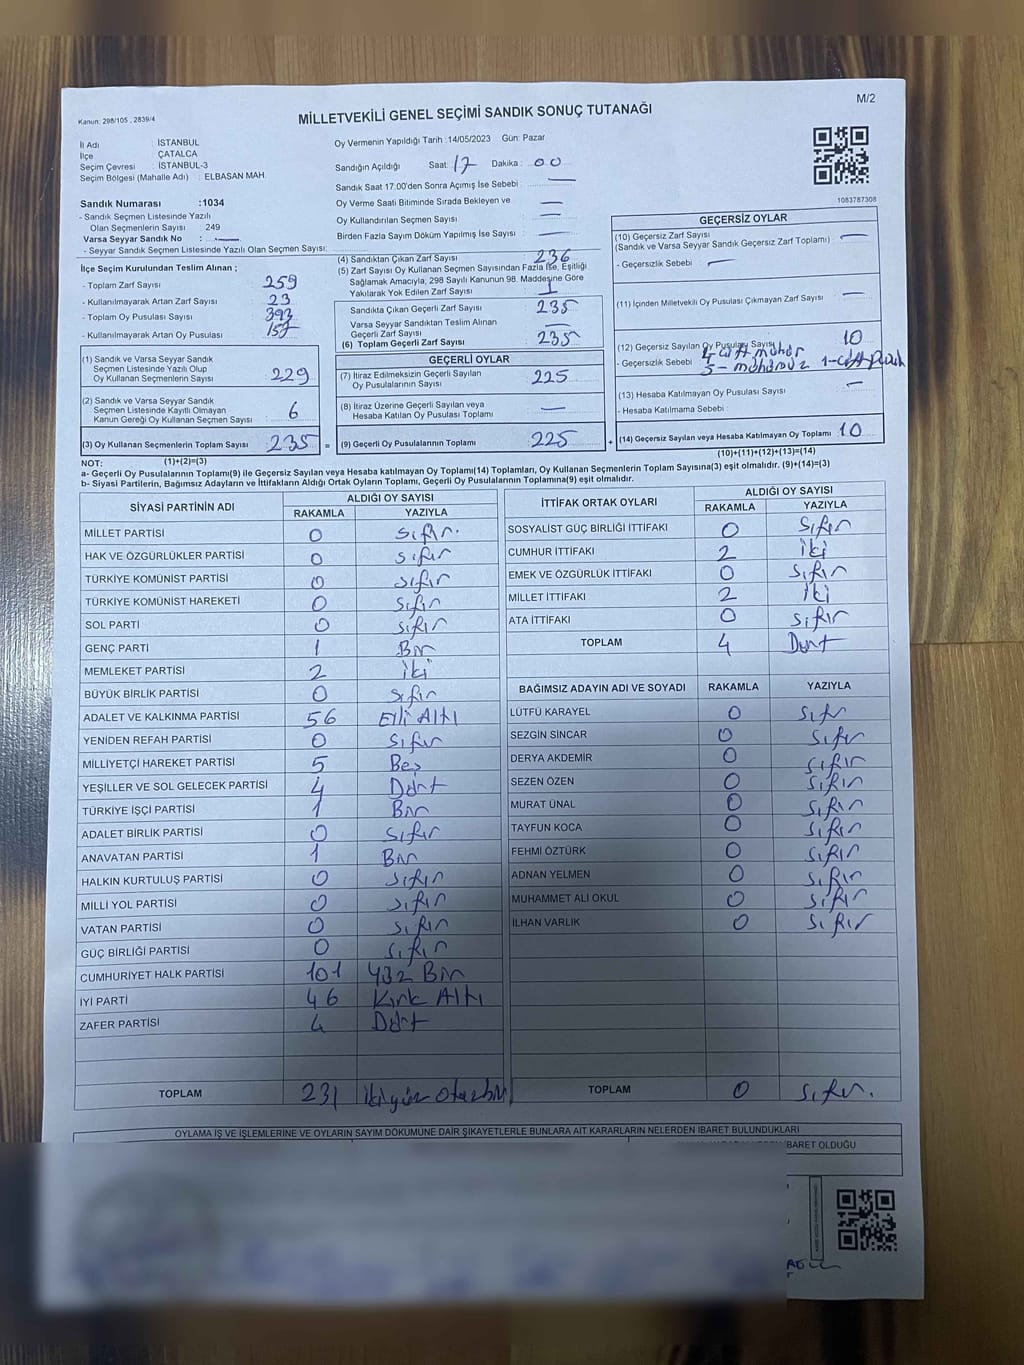 M/2
Kanun: 298/105 , 2839/4
MİLLETVEKİLİ GENEL SEÇİMİ SANDIK SONUÇ TUTANAĞI
İl Adı İSTANBUL
İlçe ÇATALCA
Seçim Çevresi : İSTANBUL-3
Seçim Bölgesi (Mahalle Adı) : ELBASAN MAH.
Sandık Numarası :1034
- Sandık Seçmen Listesinde Yazılı
Olan Seçmenlerin Sayısı 249
Varsa Seyyar Sandık No : —
- Seyyar Sandık Seçmen Listesinde Yazılı Olan Seçmen Sayısı:
Oy Vermenin Yapıldığı Tarih :14/05/2023 Gün: Pazar
Sandığın Açıldığı Saat: 17 Dakika : 00
Sandık Saat 17.00'den Sonra Açımış İse Sebebi : —
Oy Verme Saati Bitiminde Sırada Bekleyen ve —
Oy Kullandırılan Seçmen Sayısı —
Birden Fazla Sayım Döküm Yapılmış İse Sayısı —
1083787308
İlçe Seçim Kurulundan Teslim Alınan ;
- Toplam Zarf Sayısı 259
- Kullanılmayarak Artan Zarf Sayısı 23
- Toplam Oy Pusulası Sayısı 393
- Kullanılmayarak Artan Oy Pusulası 157
(1) Sandık ve Varsa Seyyar Sandık
Seçmen Listesinde Yazılı Olup
Oy Kullanan Seçmenlerin Sayısı 229
(2) Sandık ve Varsa Seyyar Sandık
Seçmen Listesinde Kayıtlı Olmayan
Kanun Gereği Oy Kullanan Seçmen Sayısı 6
(3) Oy Kullanan Seçmenlerin Toplam Sayısı 235 =
(1)+(2)=(3)
(4) Sandıktan Çıkan Zarf Sayısı 236
(5) Zarf Sayısı Oy Kullanan Seçmen Sayısından Fazla İse, Eşitliği
Sağlamak Amacıyla, 298 Sayılı Kanunun 98. Maddesine Göre
Yakılarak Yok Edilen Zarf Sayısı 1
Sandıkta Çıkan Geçerli Zarf Sayısı 235
Varsa Seyyar Sandıktan Teslim Alınan
Geçerli Zarf Sayısı —
(6) Toplam Geçerli Zarf Sayısı 235
GEÇERLİ OYLAR
(7) İtiraz Edilmeksizin Geçerli Sayılan
Oy Pusulalarının Sayısı 225
(8) İtiraz Üzerine Geçerli Sayılan veya
Hesaba Katılan Oy Pusulası Toplamı —
(9) Geçerli Oy Pusulalarının Toplamı 225 +
GEÇERSİZ OYLAR
(10) Geçersiz Zarf Sayısı —
(Sandık ve Varsa Seyyar Sandık Geçersiz Zarf Toplamı)
- Geçersizlik Sebebi —
(11) İçinden Milletvekili Oy Pusulası Çıkmayan Zarf Sayısı —
(12) Geçersiz Sayılan Oy Pusulası Sayısı 10
- Geçersizlik Sebebi 4 çift mühür
5 - mühürsüz 1-çift pusula
(13) Hesaba Katılmayan Oy Pusulası Sayısı —
- Hesaba Katılmama Sebebi
(14) Geçersiz Sayılan veya Hesaba Katılmayan Oy Toplamı 10
(10)+(11)+(12)+(13)=(14)
NOT:
a- Geçerli Oy Pusulalarının Toplamı(9) ile Geçersiz Sayılan veya Hesaba katılmayan Oy Toplamı(14) Toplamları, Oy Kullanan Seçmenlerin Toplam Sayısına(3) eşit olmalıdır. (9)+(14)=(3)
b- Siyasi Partilerin, Bağımsız Adayların ve İttifakların Aldığı Ortak Oyların Toplamı, Geçerli Oy Pusulalarının Toplamına(9) eşit olmalıdır.
SİYASİ PARTİNİN ADI ALDIĞI OY SAYISI
RAKAMLA YAZIYLA
MİLLET PARTİSİ 0 Sıfır.
HAK VE ÖZGÜRLÜKLER PARTİSİ 0 Sıfır
TÜRKİYE KOMÜNİST PARTİSİ 0 Sıfır
TÜRKİYE KOMÜNİST HAREKETİ 0 Sıfır
SOL PARTİ 0 Sıfır
GENÇ PARTİ 1 Bir
MEMLEKET PARTİSİ 2 iki
BÜYÜK BİRLİK PARTİSİ 0 Sıfır
ADALET VE KALKINMA PARTİSİ 56 Elli Altı
YENİDEN REFAH PARTİSİ 0 Sıfır
MİLLİYETÇİ HAREKET PARTİSİ 5 Beş
YEŞİLLER VE SOL GELECEK PARTİSİ 4 Dört
TÜRKİYE İŞÇİ PARTİSİ 1 Bir
ADALET BİRLİK PARTİSİ 0 Sıfır
ANAVATAN PARTİSİ 1 Bir
HALKIN KURTULUŞ PARTİSİ 0 Sıfır
MİLLİ YOL PARTİSİ 0 Sıfır
VATAN PARTİSİ 0 Sıfır
GÜÇ BİRLİĞİ PARTİSİ 0 Sıfır
CUMHURİYET HALK PARTİSİ 101 Yüz Bir
İYİ PARTİ 46 Kırk Altı
ZAFER PARTİSİ 4 Dört
TOPLAM 231 ikiyüz Otuzbir
İTTİFAK ORTAK OYLARI ALDIĞI OY SAYISI
RAKAMLA YAZIYLA
SOSYALİST GÜÇ BİRLİĞİ İTTİFAKI 0 Sıfır
CUMHUR İTTİFAKI 2 iki
EMEK VE ÖZGÜRLÜK İTTİFAKI 0 Sıfır
MİLLET İTTİFAKI 2 iki
ATA İTTİFAKI 0 Sıfır
TOPLAM 4 Dört
BAĞIMSIZ ADAYIN ADI VE SOYADI RAKAMLA YAZIYLA
LÜTFÜ KARAYEL 0 Sıfır
SEZGİN SİNCAR 0 Sıfır
DERYA AKDEMİR 0 Sıfır
SEZEN ÖZEN 0 Sıfır
MURAT ÜNAL 0 Sıfır
TAYFUN KOCA 0 Sıfır
FEHMİ ÖZTÜRK 0 Sıfır
ADNAN YELMEN 0 Sıfır
MUHAMMET ALİ OKUL 0 Sıfır
İLHAN VARLIK 0 Sıfır
TOPLAM 0 Sıfır.
OYLAMA İŞ VE İŞLEMLERİNE VE OYLARIN SAYIM DÖKÜMÜNE DAİR ŞİKAYETLERLE BUNLARA AİT KARARLARIN NELERDEN İBARET BULUNDUKLARI
BARET OLDUĞU